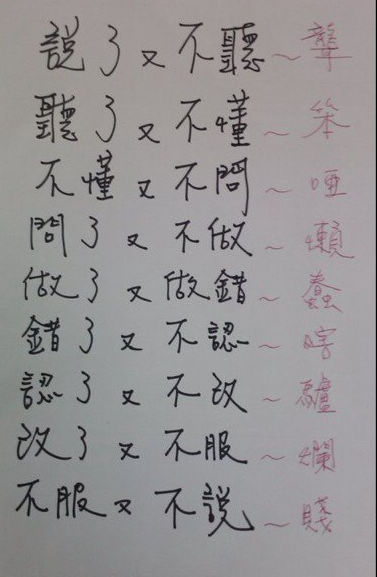 說了又不聽~聾
聽了又不懂~笨
不懂又不問~啞
問了又不做~懶
做了又做錯~蠢
錯了又不認~瞎
認了又不改~驢
改了又不服~爛
不服又不說~賤